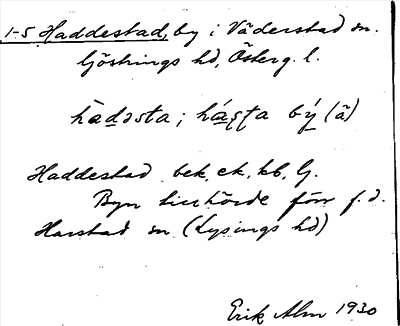 1-5 Haddestad, by i Väderstad sn.
Göstrings hd, Österg. l.
hàdəsta; há bý (ä)
Haddestad bek. ek. kb. G.
Byn tillhörde förr f.d.
Harstad sn (Lysings hd)
Erik Alm 1930